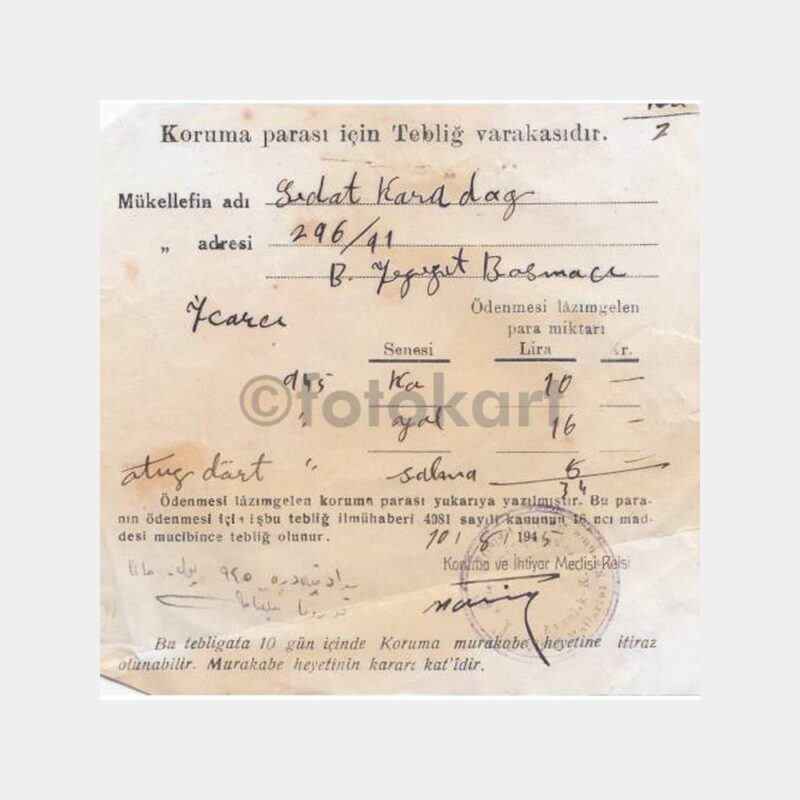 2
Koruma parası için Tebliğ varakasıdır.
Mükellefin adı Sedat Karadag
„ adresi 296/91
B. Basmacı
Ödenmesi lâzımgelen
para miktarı
Senesi Lira Kr.
945 10 —
" yol 16 —
dört " salma 6
34
©fotokart
Ödenmesi lâzımgelen koruma parası yukarıya yazılmıştır. Bu para-
nın ödenmesi için işbu tebliğ ilmühaberi 4081 sayılı kanunun 16 ncı mad-
desi mucibince tebliğ olunur. 10/8/1945
Koruma ve İhtiyar Meclisi Reisi
Bu tebligata 10 gün içinde Koruma murakabe heyetine itiraz
olunabilir. Murakabe heyetinin kararı kat'îdir.